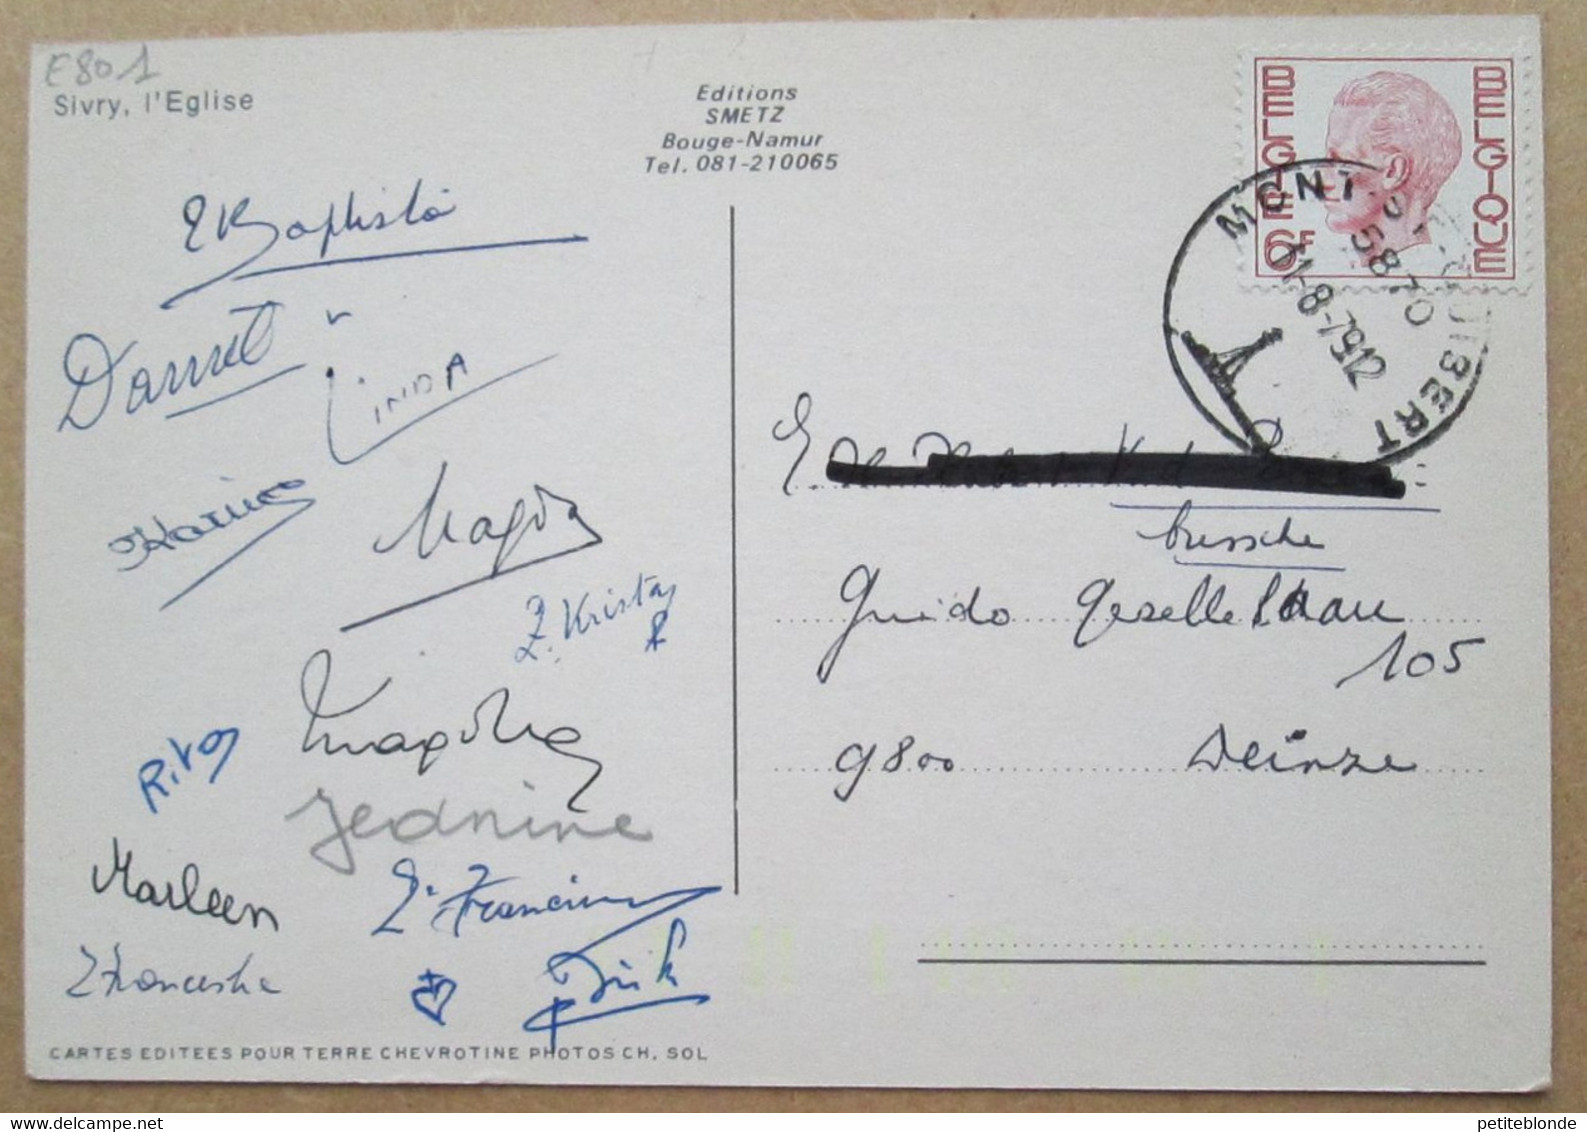 E801
Sivry, l'Eglise
Editions
SMETZ
Bouge-Namur
Tel. 081-210065
BELGIE 6F BELGIQUE
MONT-ST-GUIBERT
5870
11-8-79 12
Z Baptista
Daniel
LINDA
Karine
Magda
Z. Krista
Magda
Rita
Jeannine
Marleen
Z. Francine
Z Franciska
Dirk
bussche
Guido Gezelle laan
105
9800 Deinze
CARTES EDITEES POUR TERRE CHEVROTINE PHOTOS CH. SOL
petiteblonde